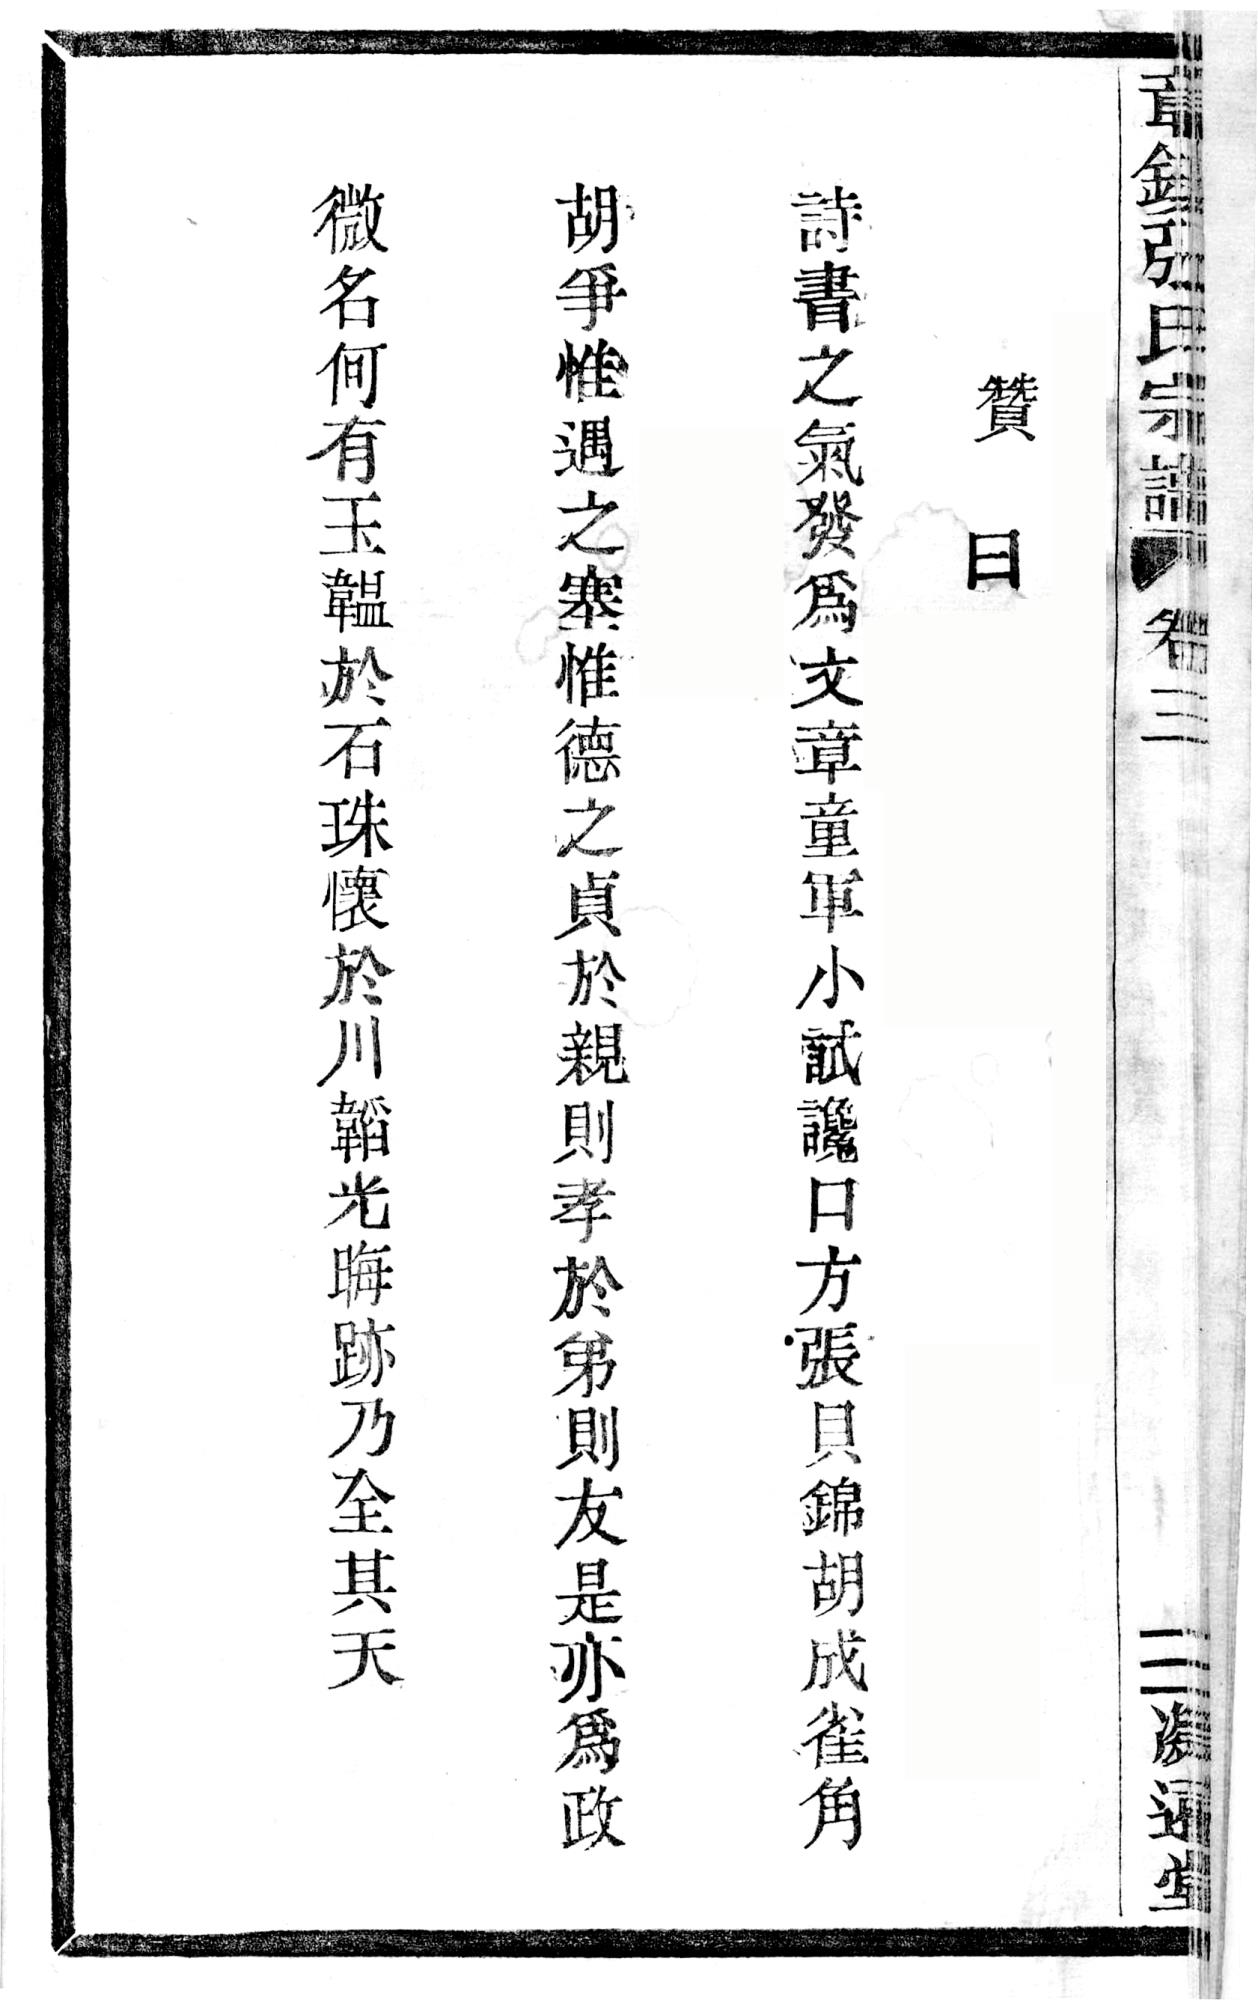 張氏宗譜 卷三 二 通堂
贊曰
詩書之氣發爲文章童軍小試讒口方張貝錦胡成雀角
胡爭惟遇之塞惟德之貞於親則孝於弟則友是亦爲政
微名何有玉韞於石珠懷於川韜光晦跡乃全其天